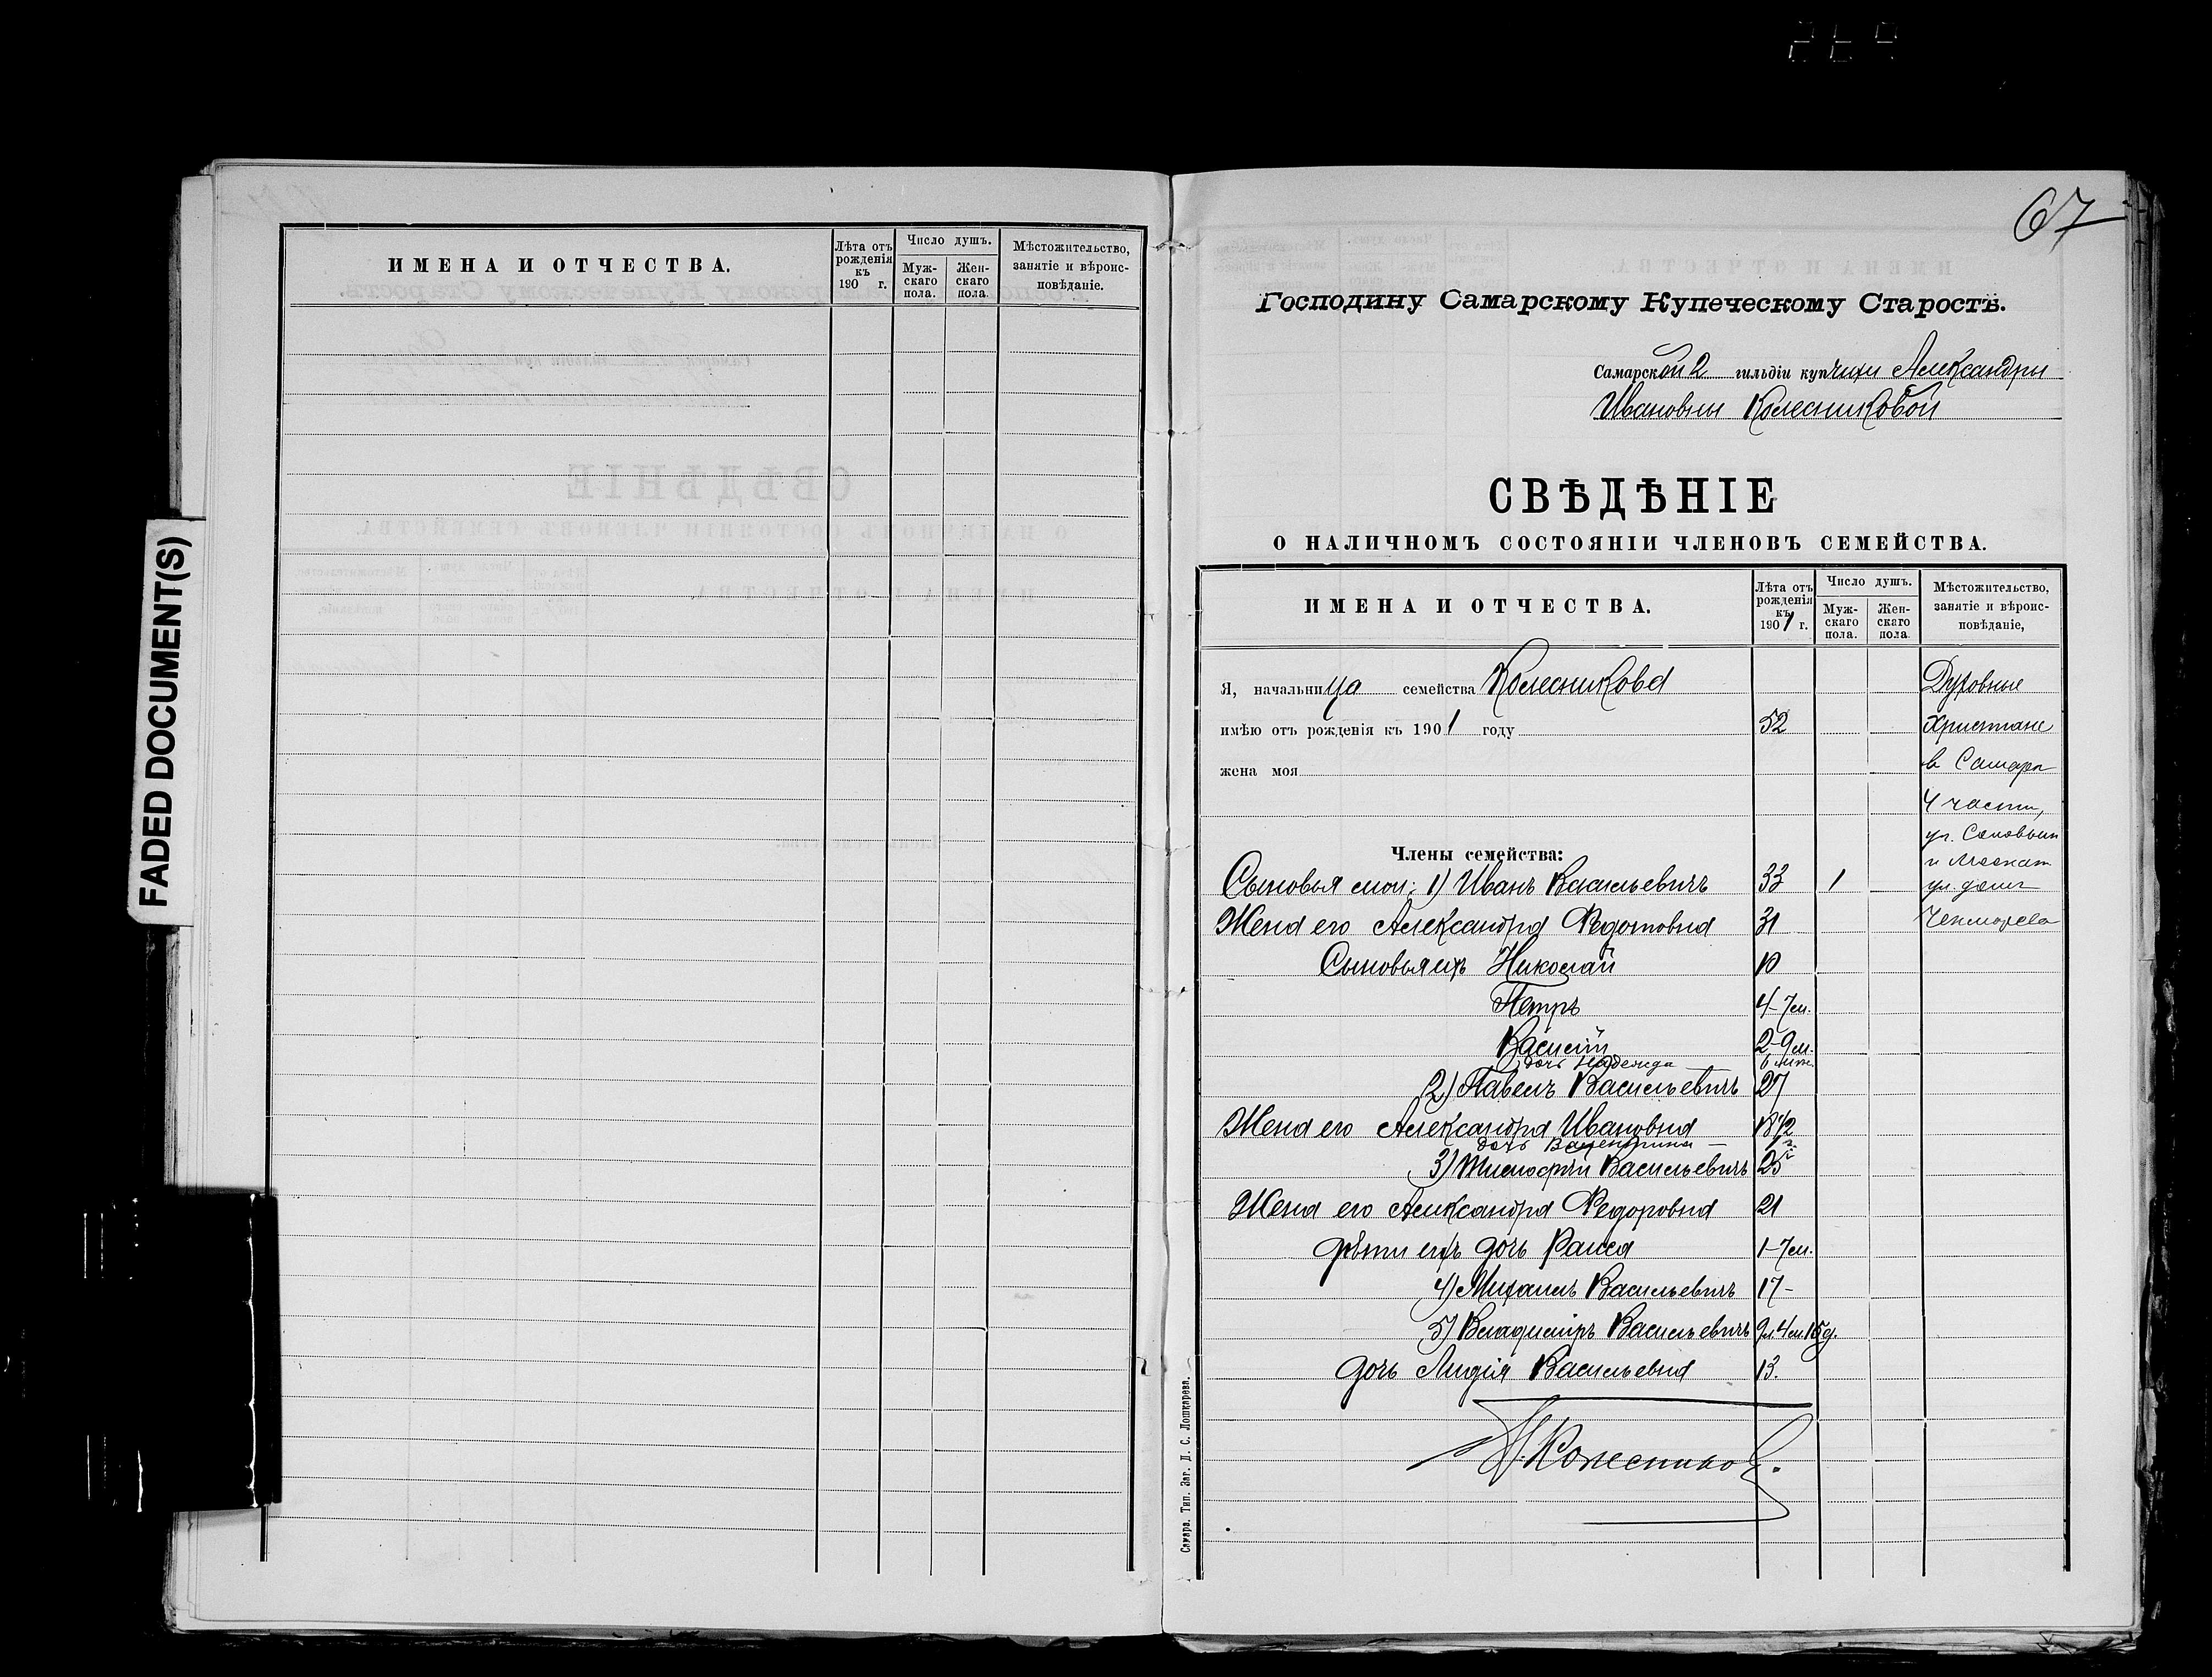 FADED DOCUMENT(S)
ИМЕНА И ОТЧЕСТВА.
Лѣта отъ рожденія къ 190 г.
Число душъ.
Муж-скаго пола.
Жен-скаго пола.
Мѣстожительство, занятіе и вѣроис-повѣданіе.
67
Господину Самарскому Купеческому Старостѣ.
Самарской 2 гильдіи купчихи Александры
Ивановны Колесниковой
СВѢДѢНІЕ
О НАЛИЧНОМЪ СОСТОЯНІИ ЧЛЕНОВЪ СЕМЕЙСТВА.
ИМЕНА И ОТЧЕСТВА.
Лѣта отъ рожденія къ 1901 г.
Число душъ.
Муж-скаго пола.
Жен-скаго пола.
Мѣстожительство, занятіе и вѣроис-повѣданіе,
Я, начальница семейства Колесникова Духовные
имѣю отъ рожденія къ 1901 году 52 Христиане
жена моя в Самарѣ
4 части,
ул.
Члены семейства: и
Сыновья мои: 1) Иванъ Васильевичъ 33 1 ул. домъ
Жена его Александра Федотовна 31
Сыновья ихъ Николай 10
Петръ 4-7 м.
Василій 2-9 м.
дочь Надежда 6
2) Павелъ Васильевичъ 27
Жена его Александра Ивановна 18 1/2
дочь Валентина —
3) Тимофѣй Васильевичъ 25
Жена его Александра Федоровна 21
Дѣти ихъ дочь Раиса 1-7 м.
4) Михаилъ Васильевичъ 17-
5) Владиміръ Васильевичъ 9 л. 4 м. 15 д.
дочь Лидія Васильевна 13.
Колесников.
Самара. Тип. Заг. Д. С. Лошкарева.